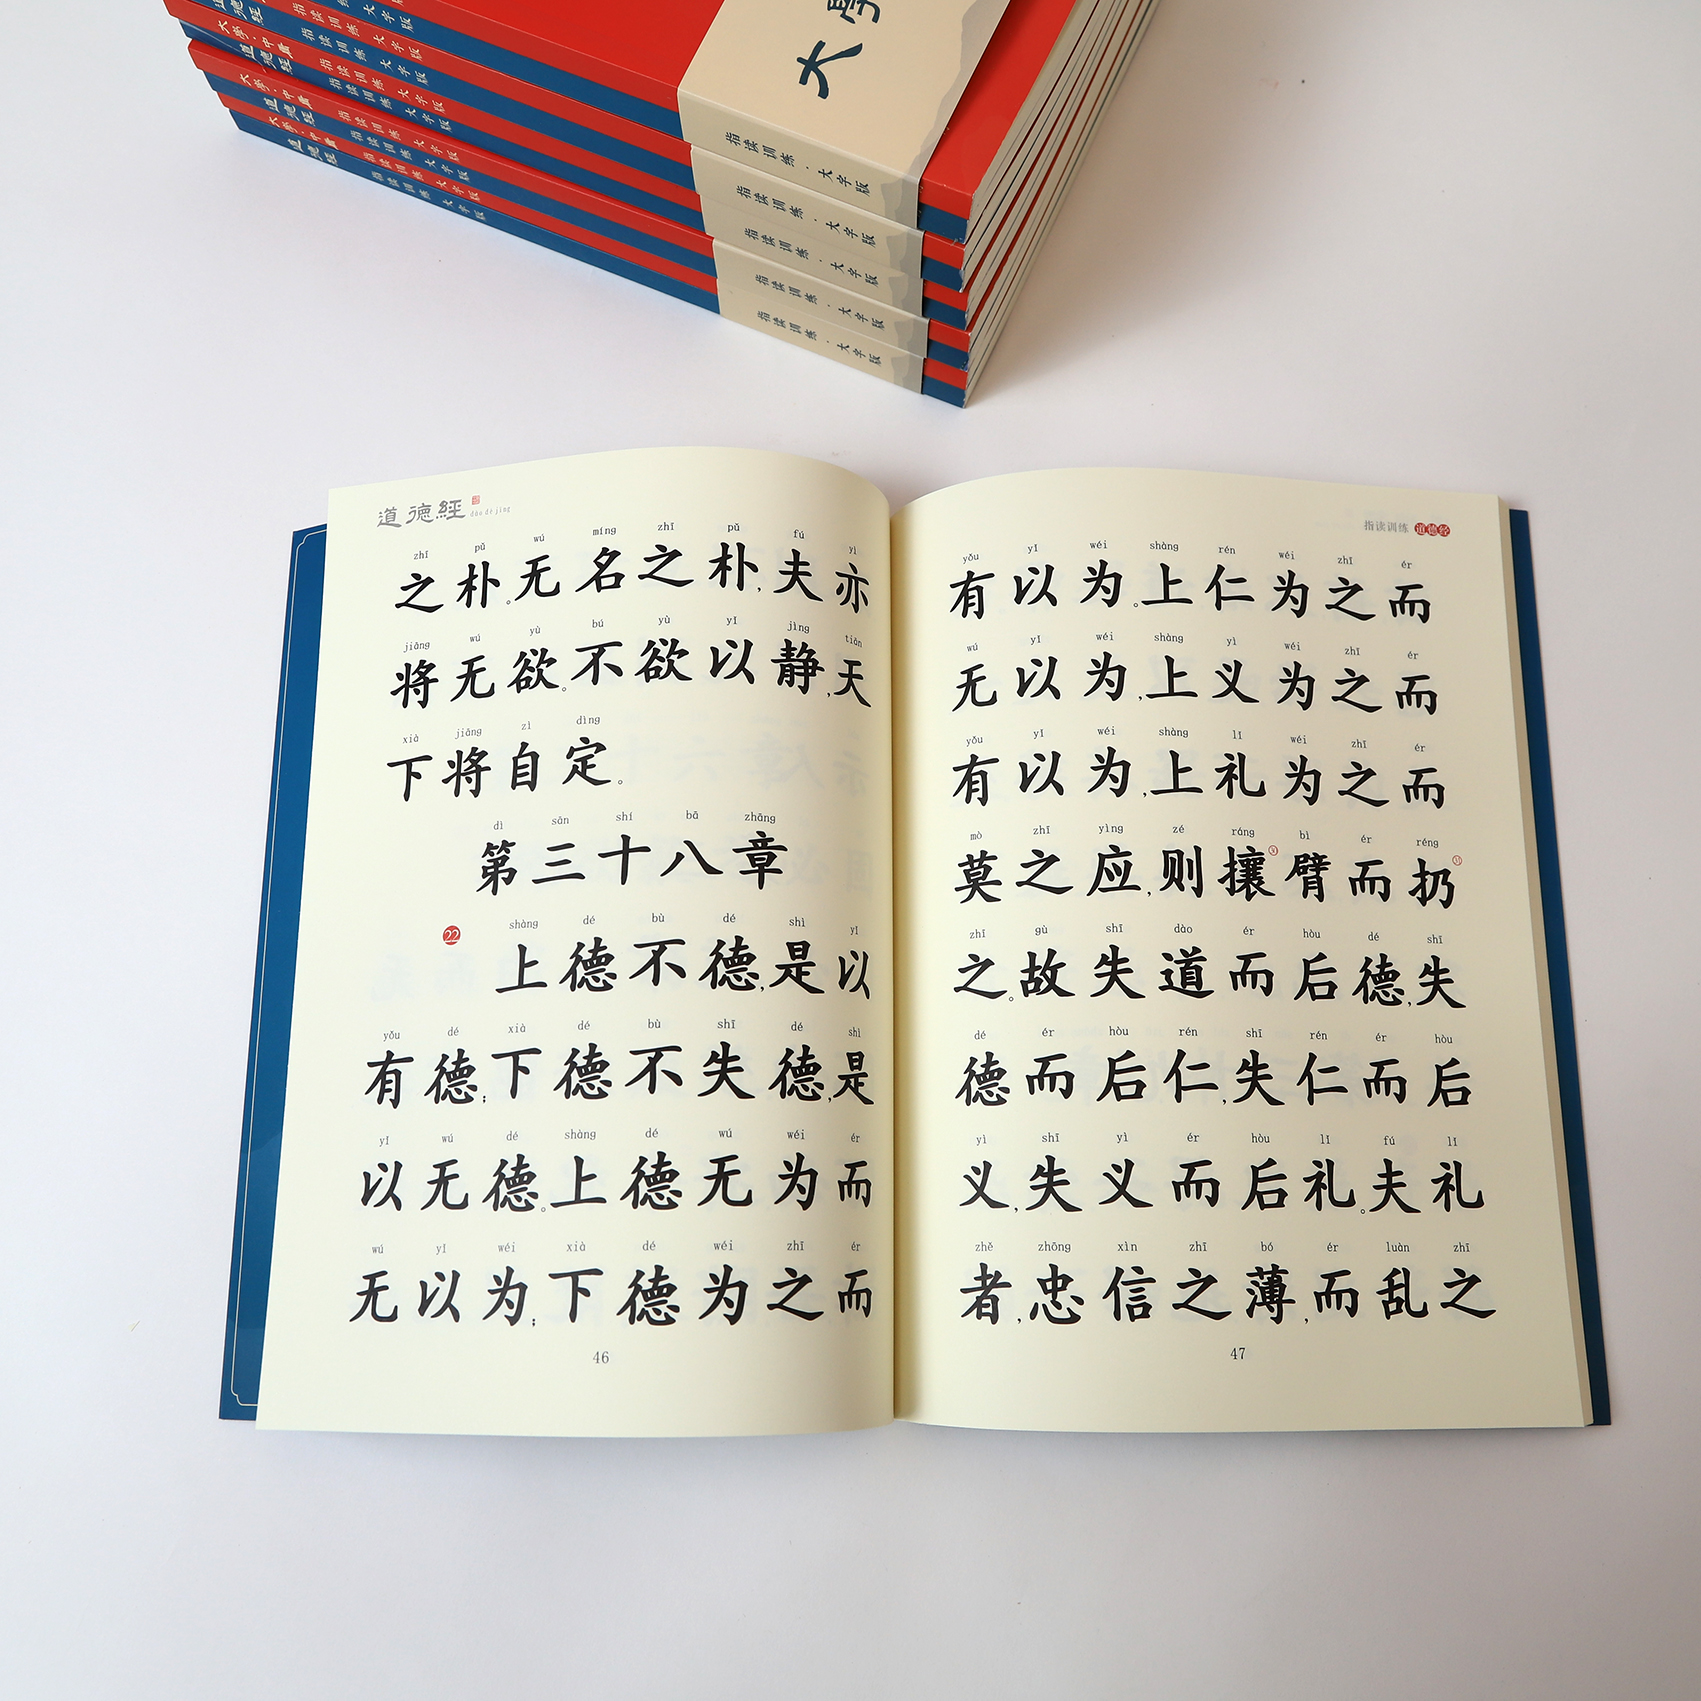 大學
大學·中庸 指读训练 大字版
道德经 指读训练 大字版
指读训练·大字版
指读训练·大字版
指读训练·大字版
指读训练·大字版
指读训练·大字版
道德經
dào dé jīng
zhī pǔ wú míng zhī pǔ fú yì
之朴。无名之朴,夫亦
jiāng wú yù bú yù yǐ jìng tiān
将无欲。不欲以静,天
xià jiāng zì dìng
下将自定。
dì sān shí bā zhāng
第三十八章
22
shàng dé bù dé shì yǐ
上德不德,是以
yǒu dé xià dé bù shī dé shì
有德;下德不失德,是
yǐ wú dé shàng dé wú wéi ér
以无德。上德无为而
wú yǐ wéi xià dé wéi zhī ér
无以为;下德为之而
46
指读训练 道德经
yǒu yǐ wéi shàng rén wéi zhī ér
有以为。上仁为之而
wú yǐ wéi shàng yì wéi zhī ér
无以为,上义为之而
yǒu yǐ wéi shàng lǐ wéi zhī ér
有以为,上礼为之而
mò zhī yìng zé rǎng bì ér rēng
莫之应,则攘臂而扔
zhī gù shī dào ér hòu dé shī
之。故失道而后德,失
dé ér hòu rén shī rén ér hòu
德而后仁,失仁而后
yì shī yì ér hòu lǐ fú lǐ
义,失义而后礼。夫礼
zhě zhōng xìn zhī bó ér luàn zhī
者,忠信之薄,而乱之
47